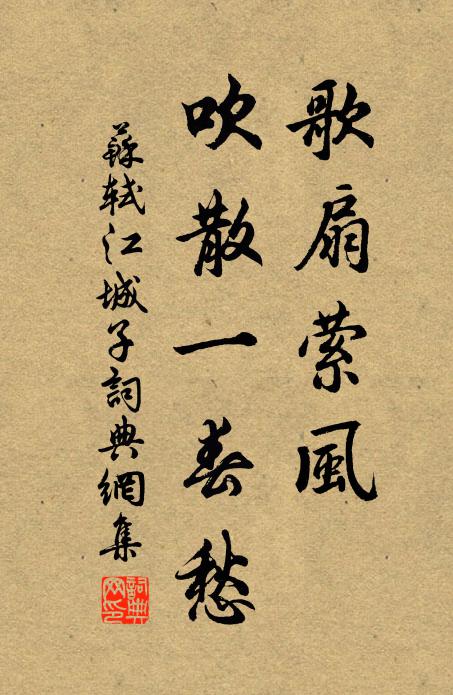 歌扇萦風
吹散一春愁
蘇軾江城子詞典網集
詞典網印